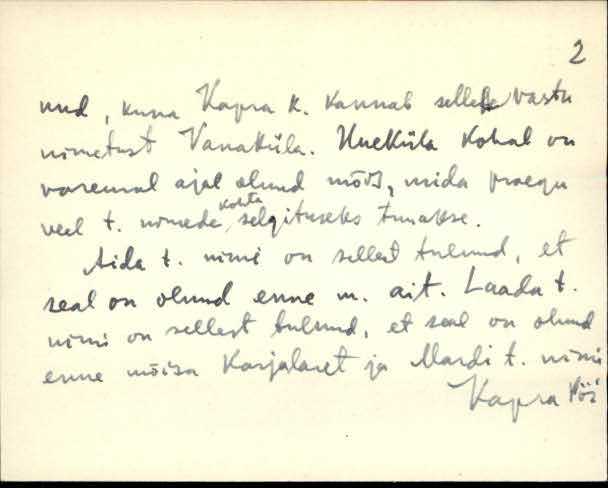 2
nud, kuna Kapra k. kannab sellele vastu
nimetust Vanaküla. Uueküla kohal on
varemal ajal olnud mõis, mida praegu
veel t. nimede kohta selgituseks tuuakse.
Aida t. nimi on sellest tulnud, et
seal on olnud enne m. ait. Laada t.
nimi on sellest tulnud, et seal on olnud
enne mõisa karjalaset ja Mardi t. nimi
Kapra